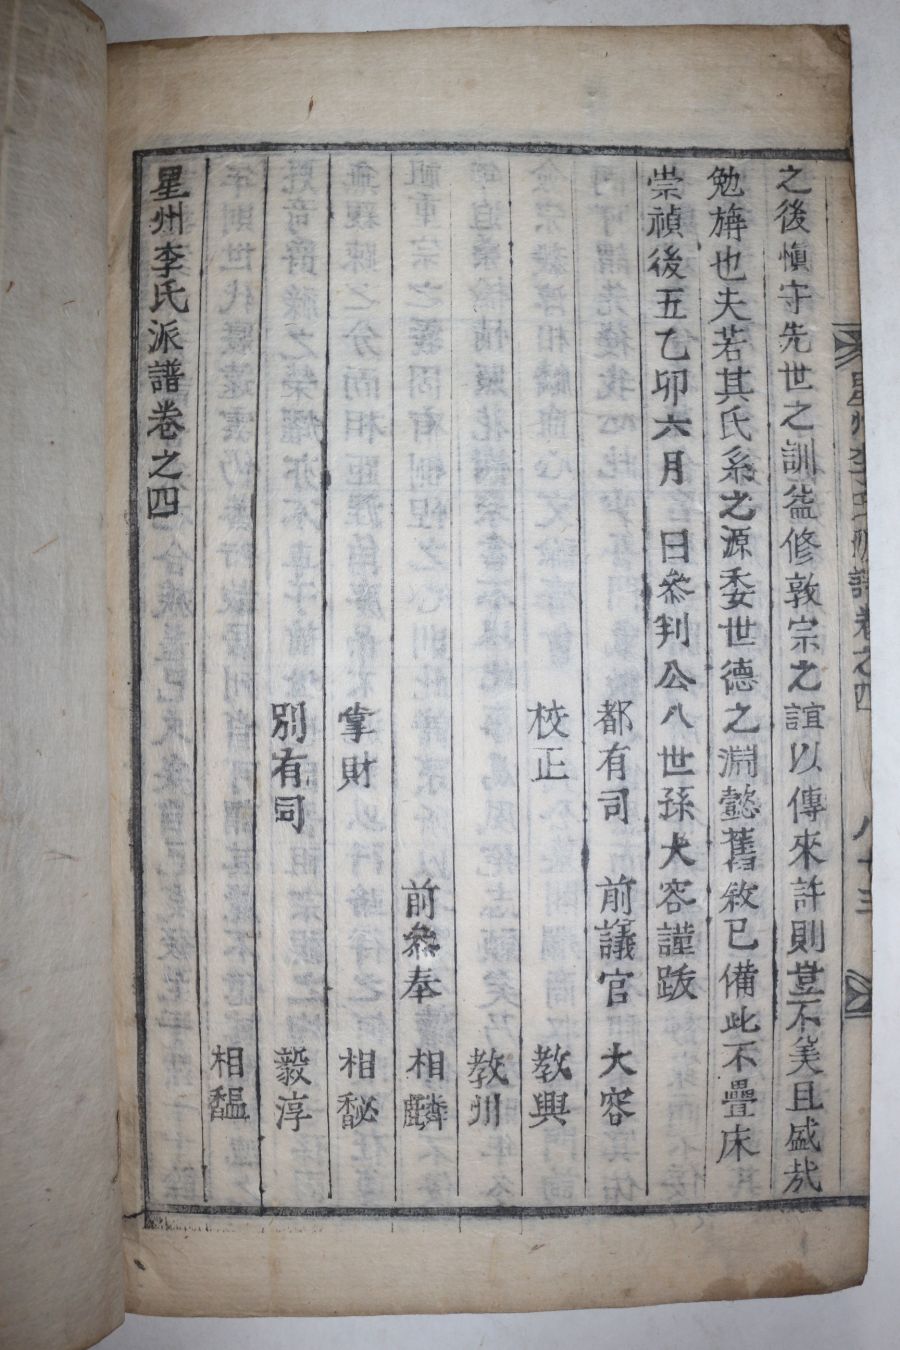 之後愼守先世之訓益修敦宗之誼以傳來許則豈不美且盛哉
勉旃也夫若其氏系之源委世德之淵懿舊敘已備此不疊床
崇禎後五乙卯六月 日叅判公八世孫大容謹跋
都有司 前議官 大容
校正 敎興
敎州
前叅奉 相麟
掌財 相馝
別有司 毅淳
相馧
星州李氏派譜卷之四
星州李氏派譜卷之四 八十三